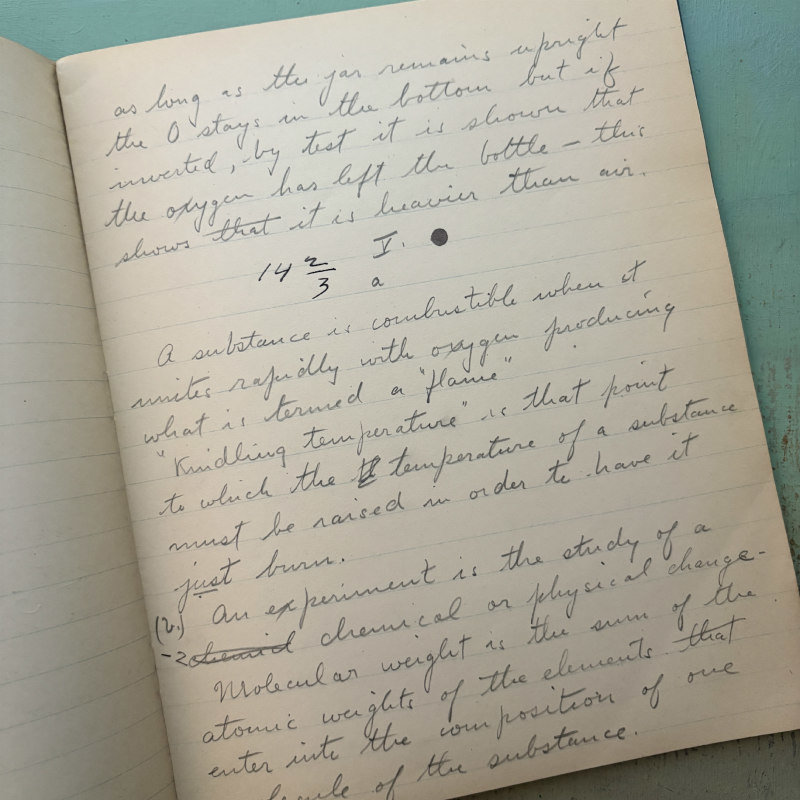 as long as the jar remains upright
the O stays in the bottom but if
inverted, by test it is shown that
the oxygen has left the bottle — this
shows that it is heavier than air.
14 2/3 V.
a
A substance is combustible when it
unites rapidly with oxygen producing
what is termed a "flame"
"Kindling temperature" is that point
to which the temperature of a substance
must be raised in order to have it
just burn.
(b.) An experiment is the study of a
-2 chemical chemical or physical change.-
Molecular weight is the sum of the
atomic weights of the elements that
enter into the composition of one
of the substance.